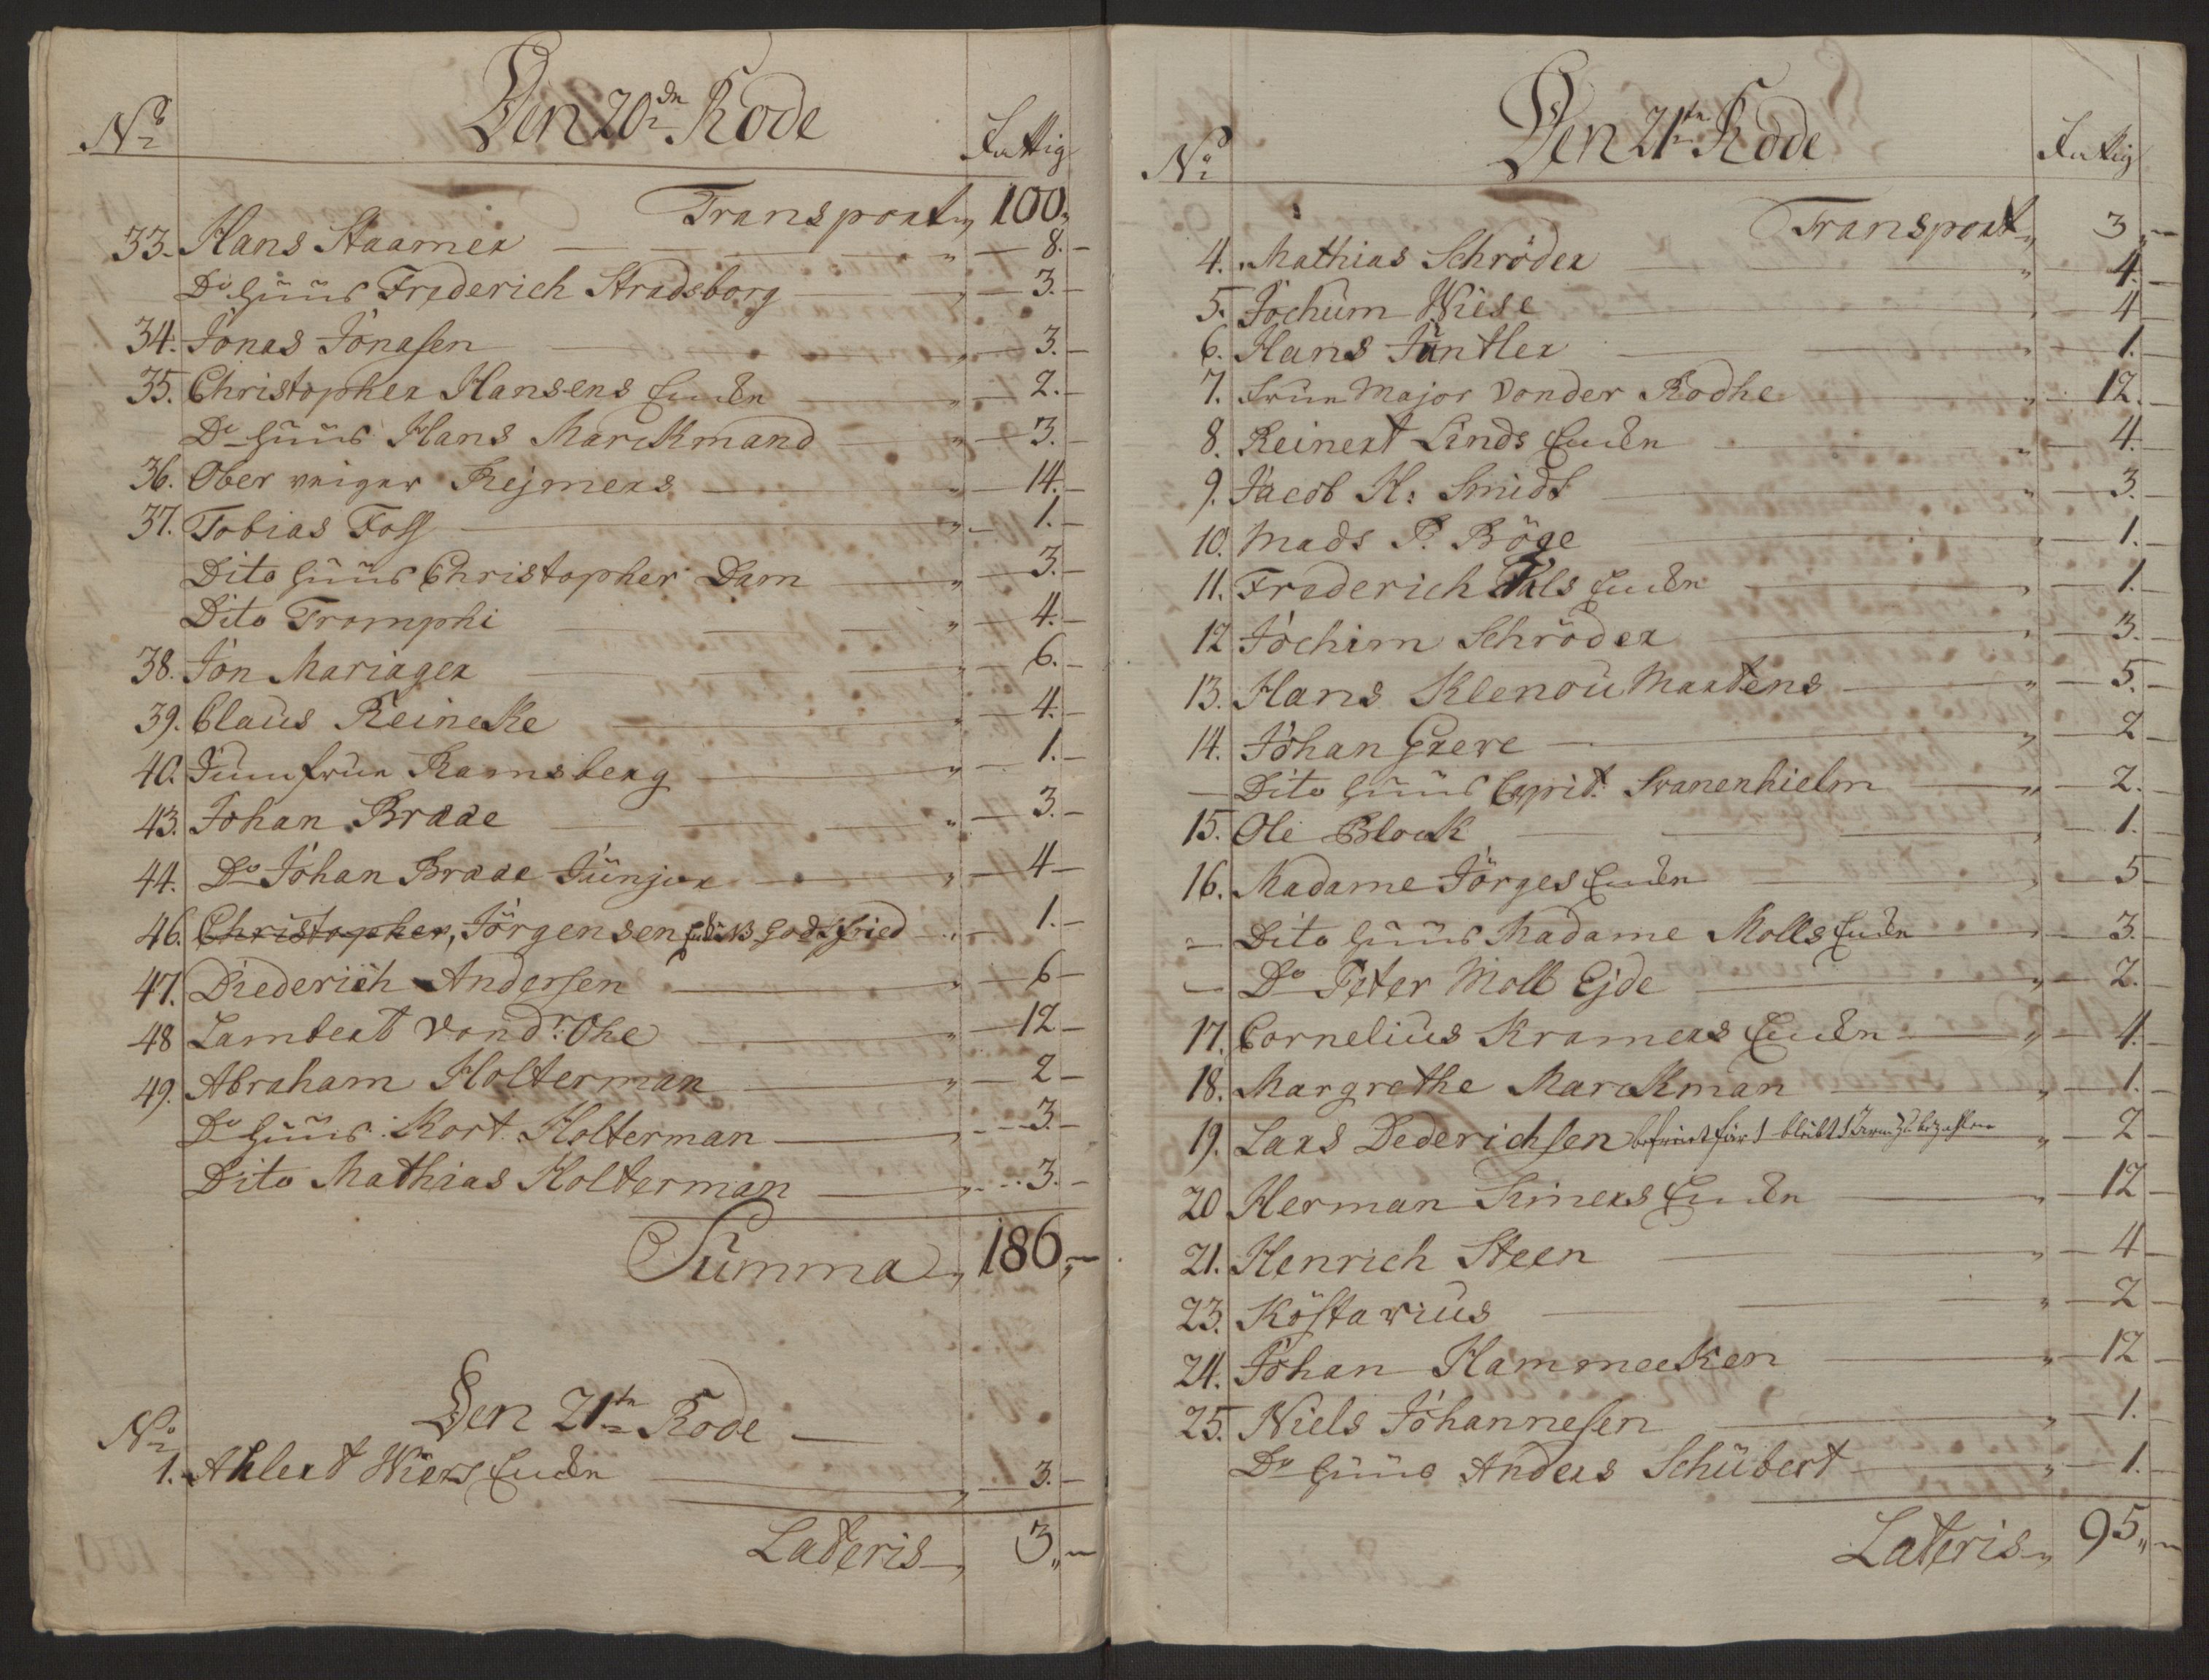 No
Den 20de Rode
Fattig
Transport 100
33. Hans Staamer 8.
Do Huus Frederich Stradsborg 3.
34. Jonas Jonasen 3.
35. Christopher Hansens Encke 2.
Do Huus Hans Marckmand 3.
36. Ober Rejmers 14.
37. Tobias Foss 1.
Dito Huus Christopher Dam 3.
Dito Tromphi 4.
38. Jon Mariager 6.
39. Claus Reineke 4.
40. Jumfrue Ramsberg 1.
43. Johan Braae 3.
44. Do Johan Braae Junjor 4
46. Christopher, Jörgensen Godtfried 1.
47. Diederich Andersen 6
48 Lambert von dr. Ohe 12
49. Abraham Holterman 2
Do Huus Kort Holterman 3.
Dito Mathias Holterman 3.
Summa 186
Den 21te Rode
No
1. Ahlert Wiers Encke 3.
Lateris 3
Den 21te Rode
No
Fattig
Transport 3
4. Mathias Schröder 4.
5. Jochum Wiese 4
6. Hans Jüntler 1.
7. Frue Major Vonder Rodhe 12.
8. Reinert Linds Encke 4.
9. Jacob H: Smidt 3.
10. Mads P. Böge 1.
11. Frederich Encke 1.
12 Jochim Schröder 3.
13. Hans Klenou Martens 5.
14. Johan Greve 2
Dito Huus Capit. Svanenhielm 2.
15. Ole Block 1.
16. Madame Jörges Encke 5
Dito Huus Madame Molls Encke 3.
Do Peter Moll Ejde 2.
17. Cornelius Kramers Encke 4.
18. Margrethe Marckman 1.
19. Lars Dederichsen befriet für 1 bleibt 1 zu bezahlen 2
20 Herman Simers Encke 12
21. Henrich Steen 4
23. Köstavius 2
24. Johan Hammecken 12
25. Niels Johannesen 1.
Do Huus Anders Schübert 1.
Lateris 95